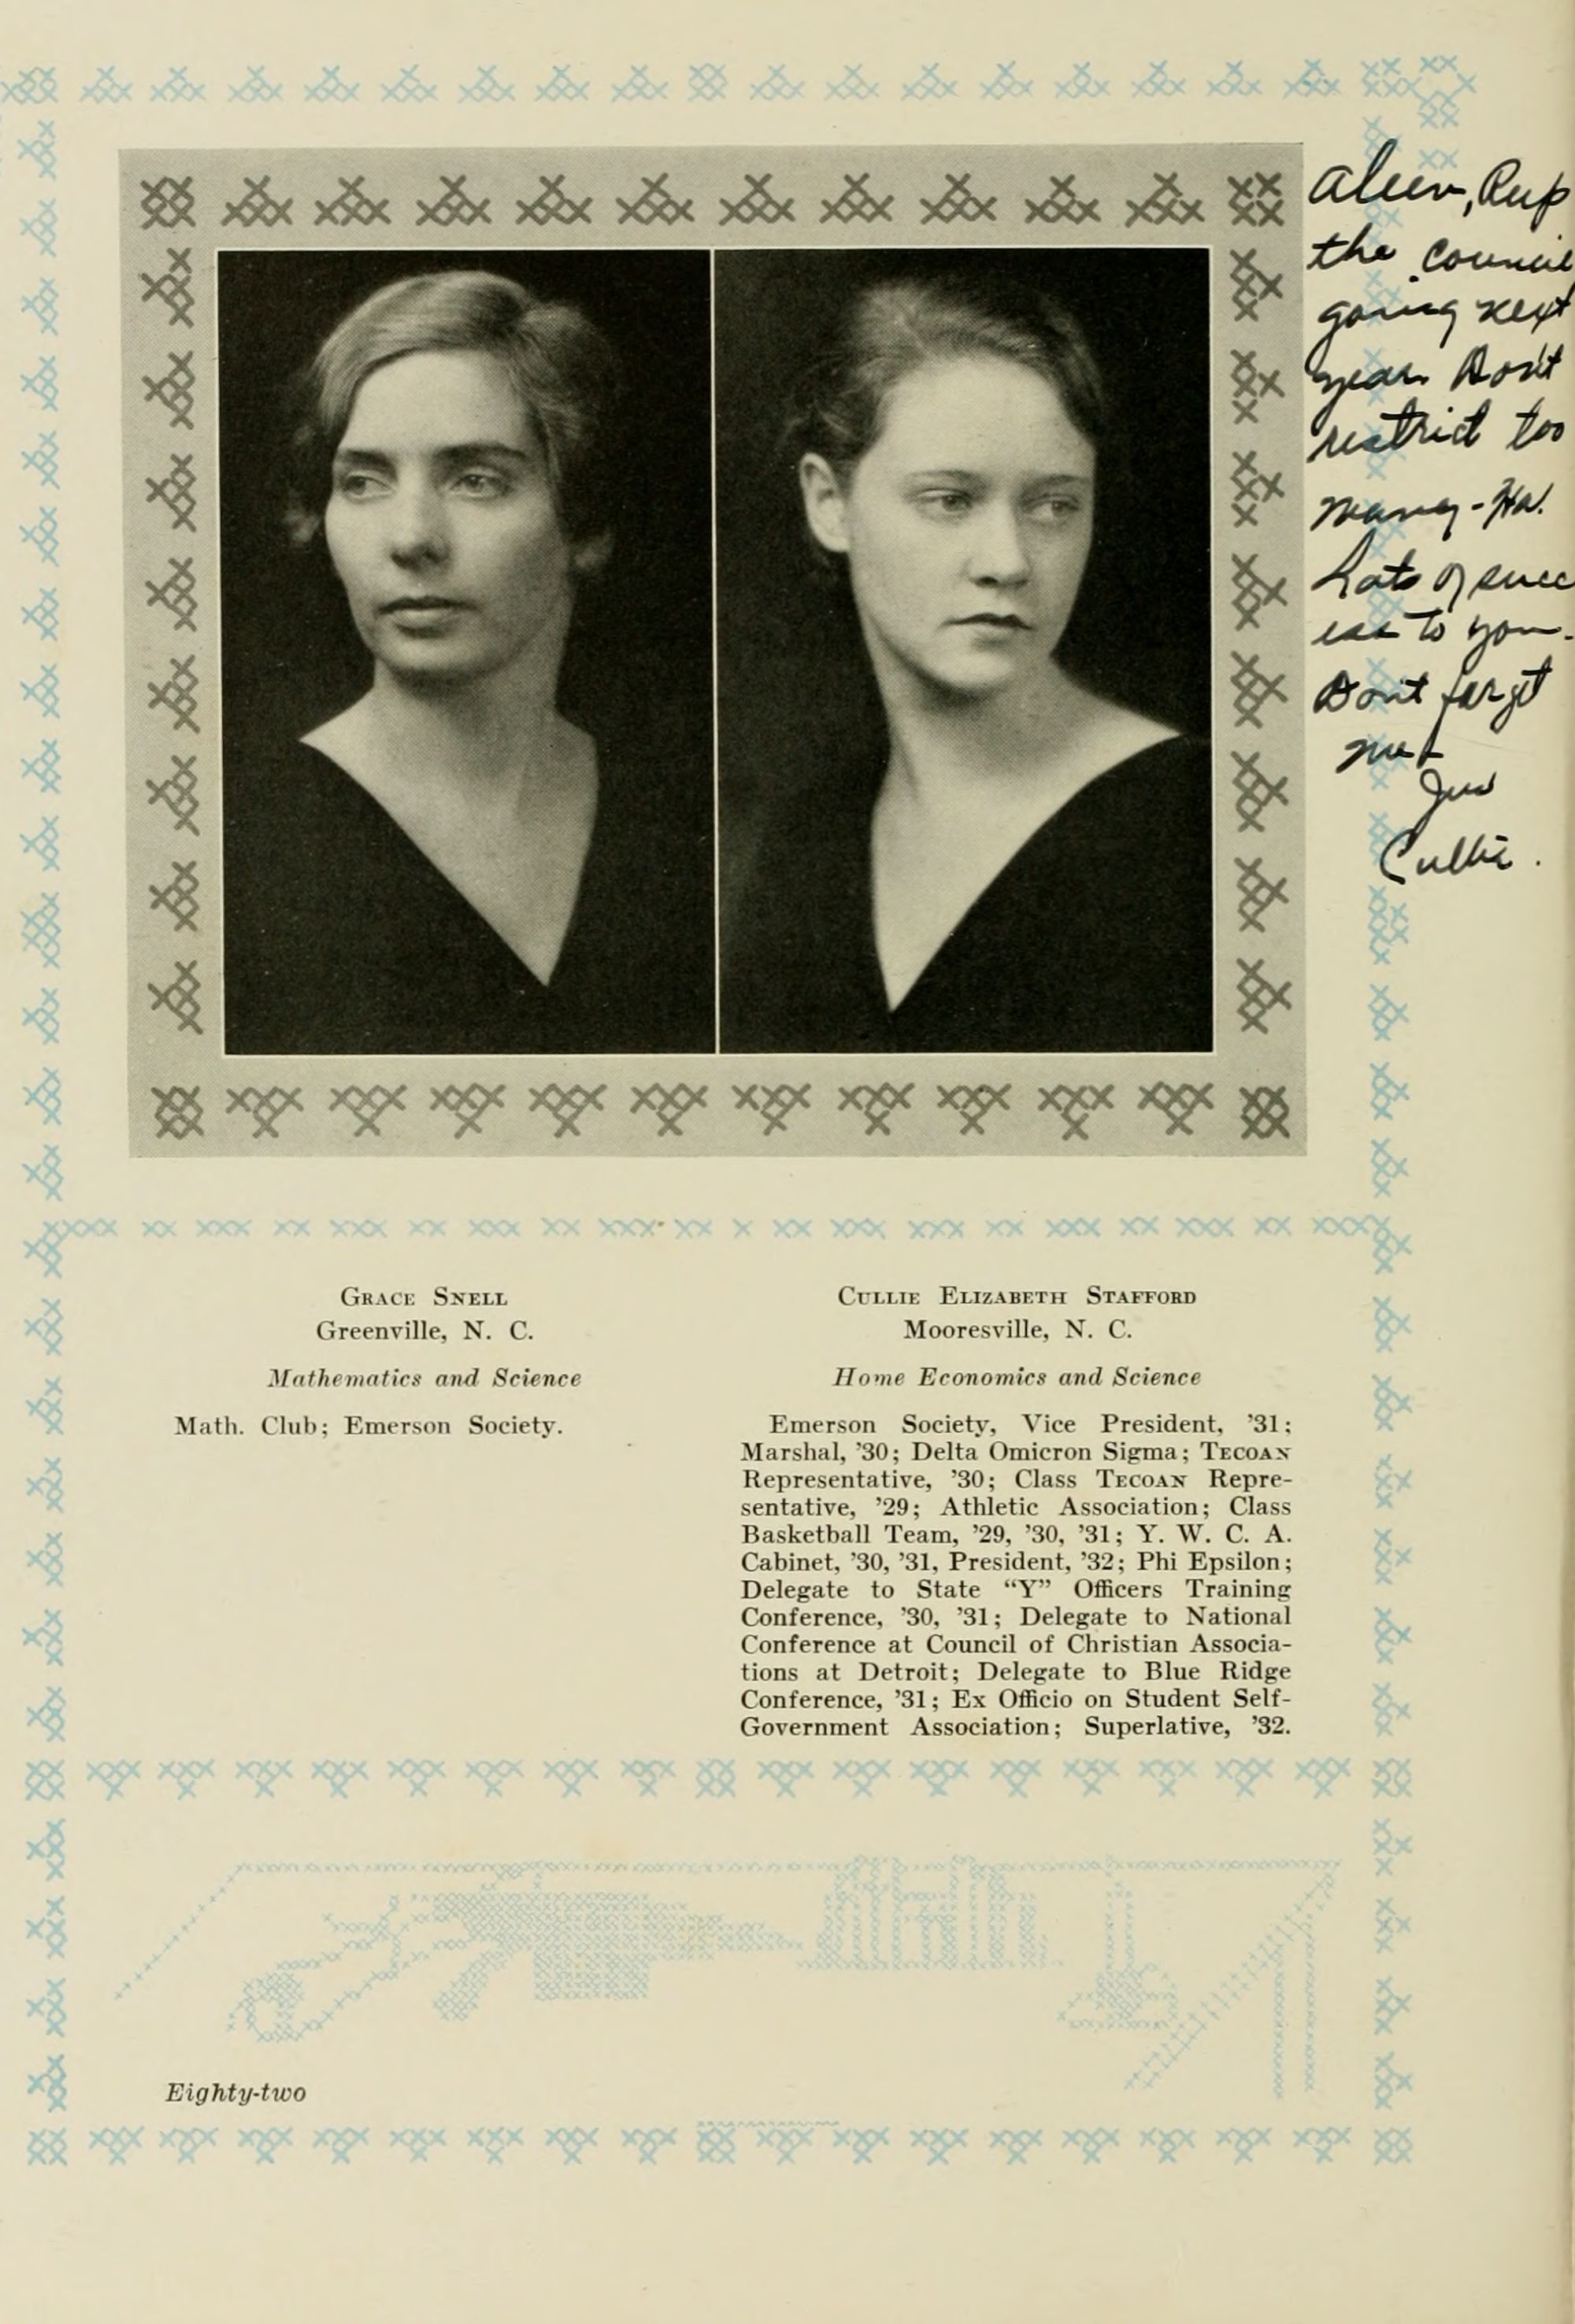 Keep
the council
going next
year. Don't
restrict too
many - Ha!
Lots of succ
ess to you -
Don't forget
me -
Cullie.
GRACE SNELL
Greenville, N. C.
Mathematics and Science
Math. Club; Emerson Society.
CULLIE ELIZABETH STAFFORD
Mooresville, N. C.
Home Economics and Science
Emerson Society, Vice President, '31;
Marshal, '30; Delta Omicron Sigma; TECOAN
Representative, '30; Class TECOAN Repre-
sentative, '29; Athletic Association; Class
Basketball Team, '29, '30, '31; Y. W. C. A.
Cabinet, '30, '31, President, '32; Phi Epsilon;
Delegate to State “Y” Officers Training
Conference, '30, '31; Delegate to National
Conference at Council of Christian Associa-
tions at Detroit; Delegate to Blue Ridge
Conference, '31; Ex Officio on Student Self-
Government Association; Superlative, '32.
Eighty-two